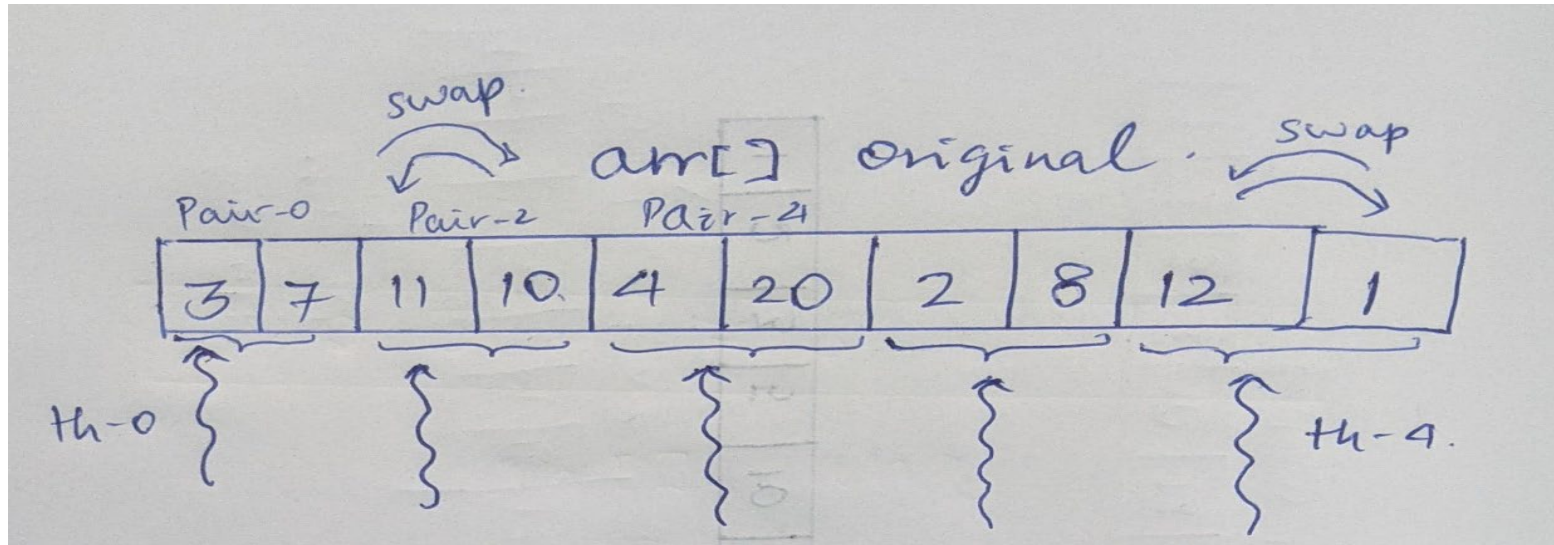 swap.
arr[] original.
swap
Pair-0 Pair-2 Pair-4
3 7 11 10 4 20 2 8 12 1
th-0
th-4.